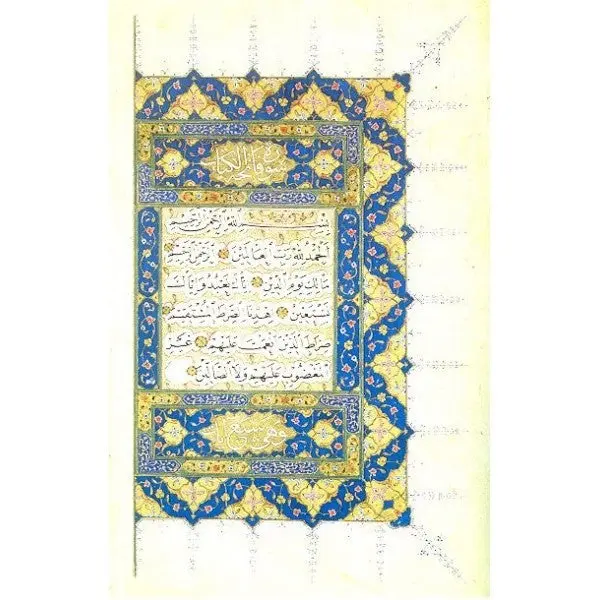 سورة فاتحة الكتاب
بسم الله الرحمن الرحيم
الحمد لله رب العالمين الرحمن الرحيم
مالك يوم الدين اياك نعبد واياك
نستعين اهدنا الصراط المستقيم
صراط الذين انعمت عليهم غير
المغضوب عليهم ولا الضالين
وهي سبع